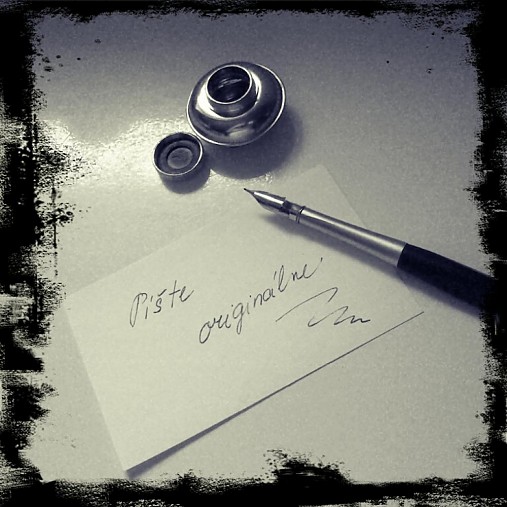 Píšte
originálne